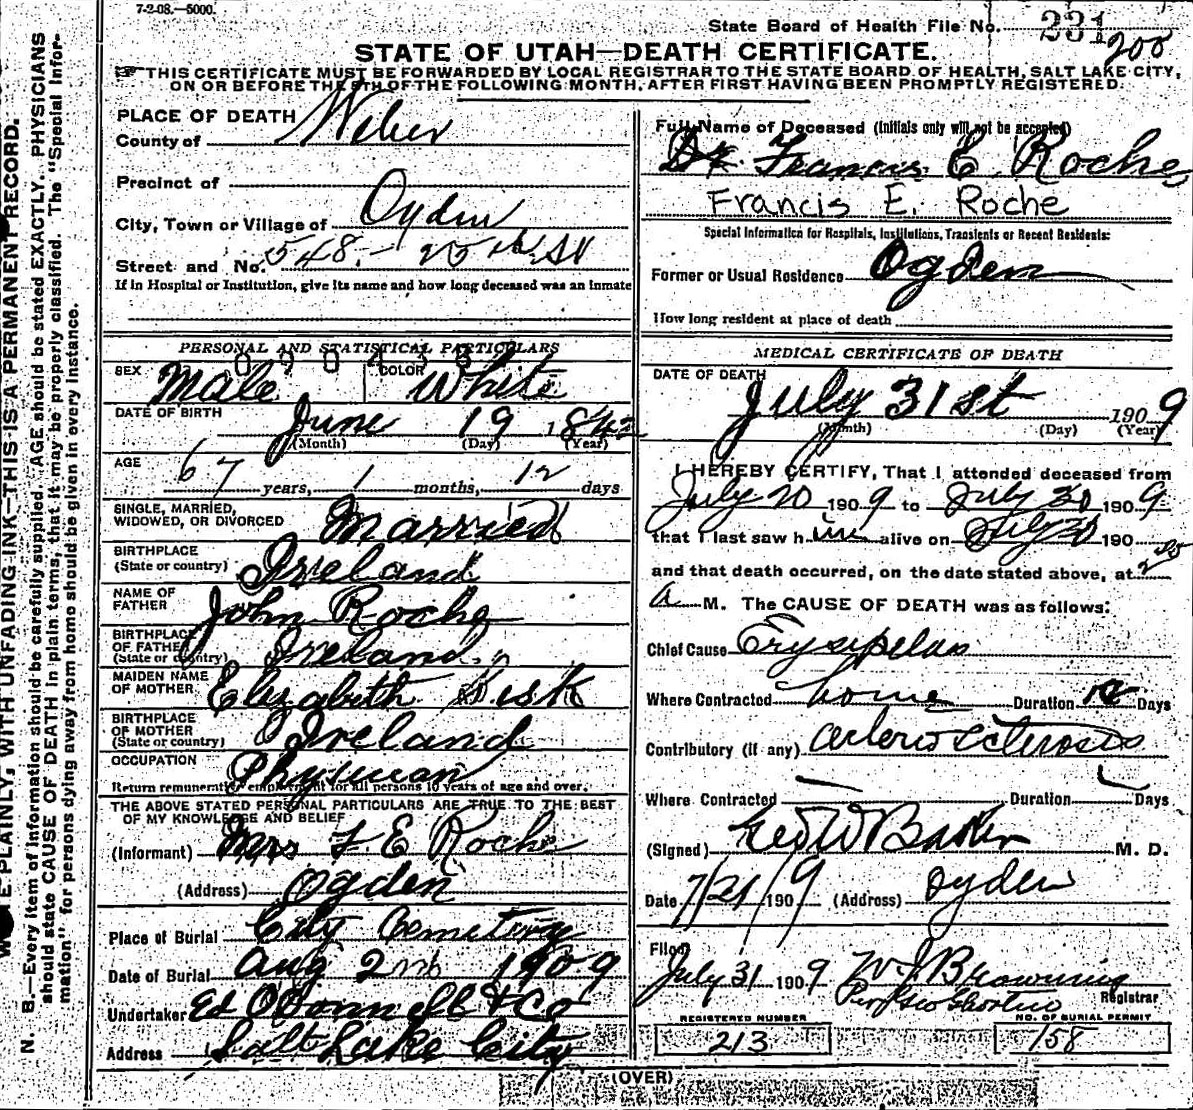 7-2-08.—5000.
State Board of Health File No. 231
200
STATE OF UTAH—DEATH CERTIFICATE.
THIS CERTIFICATE MUST BE FORWARDED BY LOCAL REGISTRAR TO THE STATE BOARD OF HEALTH, SALT LAKE CITY,
ON OR BEFORE THE 5TH OF THE FOLLOWING MONTH, AFTER FIRST HAVING BEEN PROMPTLY REGISTERED.
PLACE OF DEATH
County of Weber
Precinct of
City, Town or Village of Ogden
Street and No. 548 - 25th St
If in Hospital or Institution, give its name and how long deceased was an inmate
PERSONAL AND STATISTICAL PARTICULARS
SEX Male COLOR White
DATE OF BIRTH
June 19 1842
(Month) (Day) (Year)
AGE
67 years, 1 months, 12 days
SINGLE, MARRIED,
WIDOWED, OR DIVORCED Married
BIRTHPLACE
(State or country) Ireland
NAME OF
FATHER John Roche
BIRTHPLACE
OF FATHER
(State or country) Ireland
MAIDEN NAME
OF MOTHER Elizabeth
BIRTHPLACE
OF MOTHER
(State or country) Ireland
OCCUPATION Physician
Return remunerative employment for all persons 10 years of age and over.
THE ABOVE STATED PERSONAL PARTICULARS ARE TRUE TO THE BEST
OF MY KNOWLEDGE AND BELIEF
(Informant) Mrs F. E Roche
(Address) Ogden
Place of Burial City Cemetery
Date of Burial Aug 2nd 1909
Undertaker Ed O'Donnell & Co
Address Salt Lake City
Full Name of Deceased (Initials only will not be accepted)
Dr Francis E Roche
Francis E. Roche
Special Information for Hospitals, Institutions, Transients or Recent Residents:
Former or Usual Residence Ogden
How long resident at place of death
MEDICAL CERTIFICATE OF DEATH
DATE OF DEATH
July 31st 1909
(Month) (Day) (Year)
I HEREBY CERTIFY, That I attended deceased from
July 20 1909 to July 30 1909
that I last saw him alive on July 30 190
and that death occurred, on the date stated above, at
a M. The CAUSE OF DEATH was as follows:
Chief Cause Erysipelas
Where Contracted home Duration Days
Contributory (if any) arterio sclerosis
Where Contracted Duration Days
(Signed) Geo W Baker M. D.
Date 7/31/1909 (Address) Ogden
Filed
July 31 1909 W J Browning
Per Registrar
REGISTERED NUMBER
213
NO. OF BURIAL PERMIT
158
(OVER)
PLAINLY, WITH UNFADING INK—THIS IS A PERMANENT RECORD.
N. B.—Every item of information should be carefully supplied. AGE should be stated EXACTLY. PHYSICIANS
should state CAUSE OF DEATH in plain terms, that it may be properly classified. The "Special Infor-
mation" for persons dying away from home should be given in every instance.